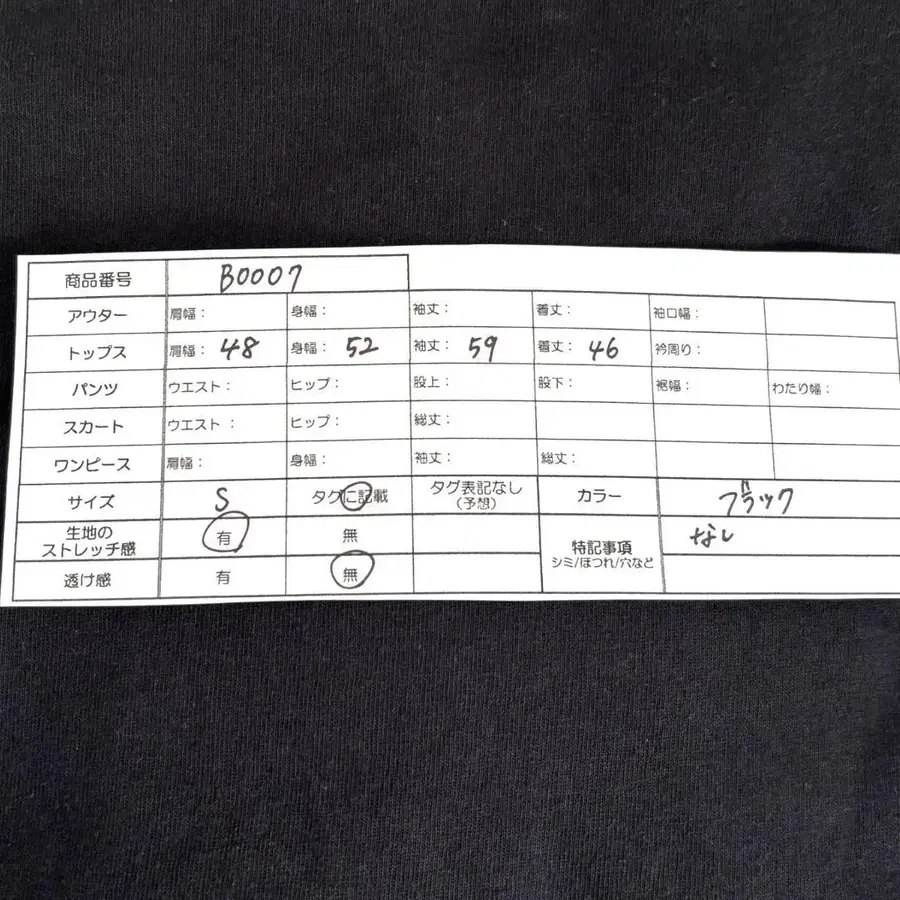 商品番号 B0007
アウター 肩幅： 身幅： 袖丈： 着丈： 袖口幅：
トップス 肩幅： 48 身幅： 52 袖丈： 59 着丈： 46 衿周り：
パンツ ウエスト： ヒップ： 股上： 股下： 裾幅： わたり幅：
スカート ウエスト： ヒップ： 総丈：
ワンピース 肩幅： 身幅： 袖丈： 総丈：
サイズ S タグに記載 タグ表記なし カラー ブラック
(予想)
生地の 有 無 なし
ストレッチ感 特記事項
透け感 有 無 シミ/ほつれ/穴など